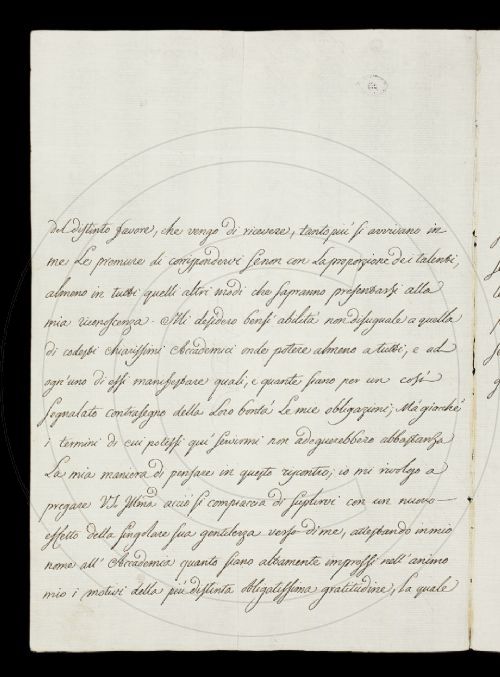 del distinto favore, che vengo di ricevere, tanto piu' si avvivano in
me Le premure di corrispondervi senon con La proporzione dei talenti,
almeno in tutti quelli altri modi che sapranno presentarsi alla
mia riconoscenza. Mi desidero bensi abilità non disuguale a quella
di codesti chiarissimi Academici onde potere almeno a tutti, e ad
ogn'uno di essi manifestare quali, e quante siano per un così
segnalato contrasegno della Loro bontà Le mie obligazioni; Ma giacchè
i termini di cui potessi quì servirmi non adequerebbero abbastanza
La mia maniera di pensare in questo riscontro; io mi rivolgo a
pregare VS. Illma acciò si compiaccia di suplirvi con un nuovo
effetto della singolare sua gentilezza verso di me, attestando in mio
nome all'Academia quanto siano altamente impressi nell'animo
mio i motivi della più distinta obligatissima gratitudine, La quale